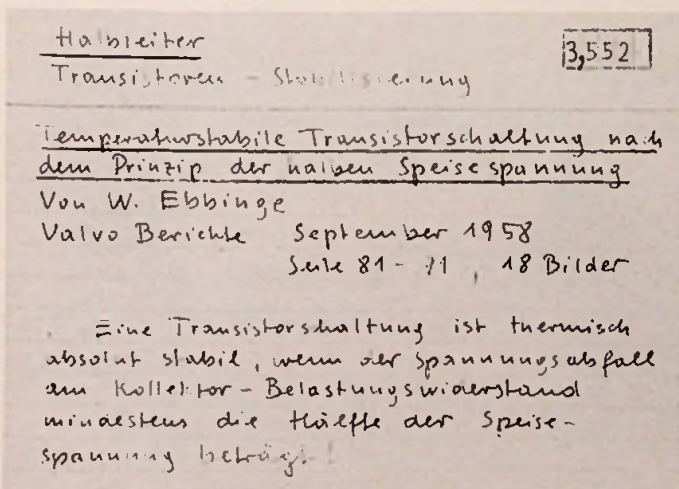 Halbleiter
3,552
Transistoren - Stabilisierung
Temperaturstabile Transistorschaltung nach
dem Prinzip der halben Speisespannung
Von W. Ebbinge
Valvo Berichte September 1958
Seite 81 - , 18 Bilder
Eine Transistorschaltung ist thermisch
absolut stabil, wenn der Spannungsabfall
am Kollektor - Belastungswiderstand
mindestens die Hälfte der Speise-
spannung beträgt!